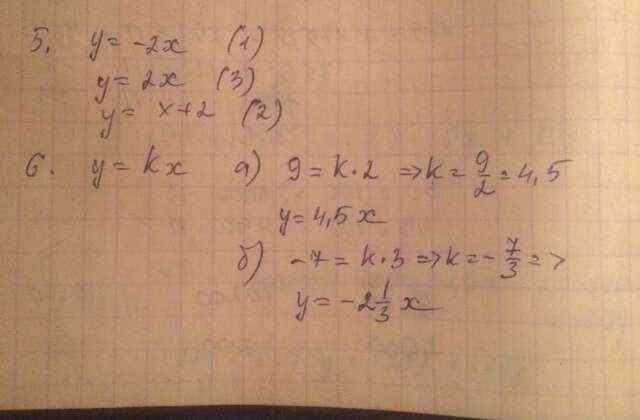 5. y = -2x (1)
y = 2x (3)
y = x+2 (2)
6. y = kx а) 9 = k·2 => k = 9/2 = 4,5
y = 4,5x
б) -7 = k·3 => k = -7/3 =>
y = -2 1/3 x